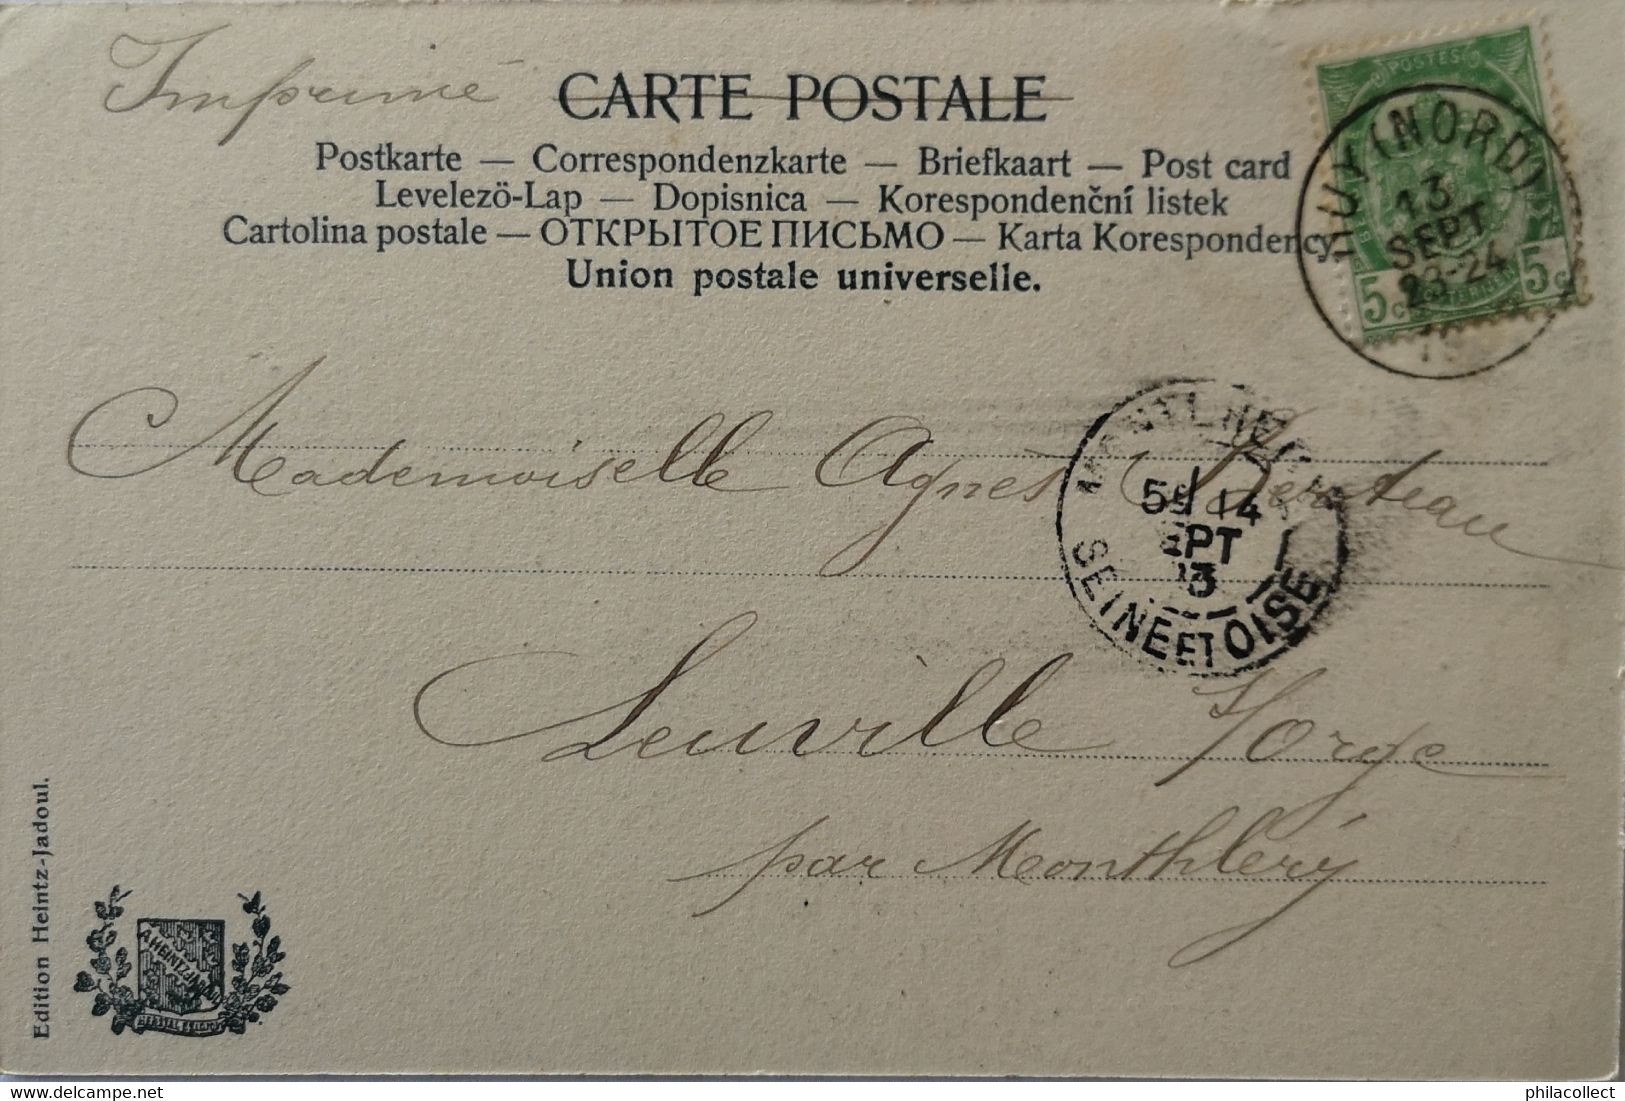 Imprimé
CARTE POSTALE
Postkarte — Correspondenzkarte — Briefkaart — Post card
Levelezö-Lap — Dopisnica — Korespondenční listek
Cartolina postale — ОТКРЫТОЕ ПИСЬМО — Karta Korespondency
Union postale universelle.
POSTES
5c 5c
HUY (NORD)
13
SEPT
23-24
Mademoiselle Agnès
14
SEINE ET OISE
Leuville s/ Orge
par Monthléry
Edition Heintz-Jadoul.
A.HEINTZ-JADOUL
philacollect